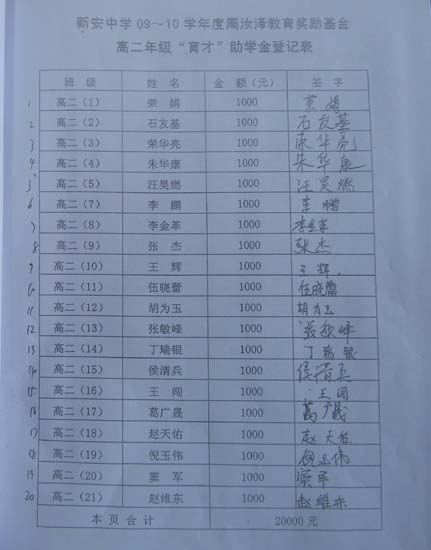 新安中学09～10学年度周汝泽教育奖励基金
高二年级“育才”助学金登记表
班 级 姓 名 金 额（元） 签 字
1 高二（1） 荣 娟 1000 荣 娟
2 高二（2） 石友基 1000 石友基
3 高二（3） 荣华亮 1000 荣华亮
4 高二（4） 朱华康 1000 朱华康
5 高二（5） 汪昊燃 1000 汪昊燃
6 高二（7） 李 鹏 1000 李 鹏
7 高二（8） 李金革 1000 李金革
8 高二（9） 张 杰 1000 张杰
9 高二（10） 王 辉 1000 王 辉
10 高二（11） 伍晓蕾 1000 伍晓蕾
11 高二（12） 胡为玉 1000 胡为玉
12 高二（13） 张敏峰 1000 张敏峰
13 高二（14） 丁瑞银 1000 丁瑞银
14 高二（15） 侯清兵 1000 侯清兵
15 高二（16） 王 闯 1000 王闯
16 高二（17） 葛广晟 1000 葛广晟
17 高二（18） 赵天佑 1000 赵天佑
18 高二（19） 倪玉伟 1000 倪玉伟
19 高二（20） 窦 军 1000 窦军
20 高二（21） 赵维东 1000 赵维东
本 页 合 计 20000 元